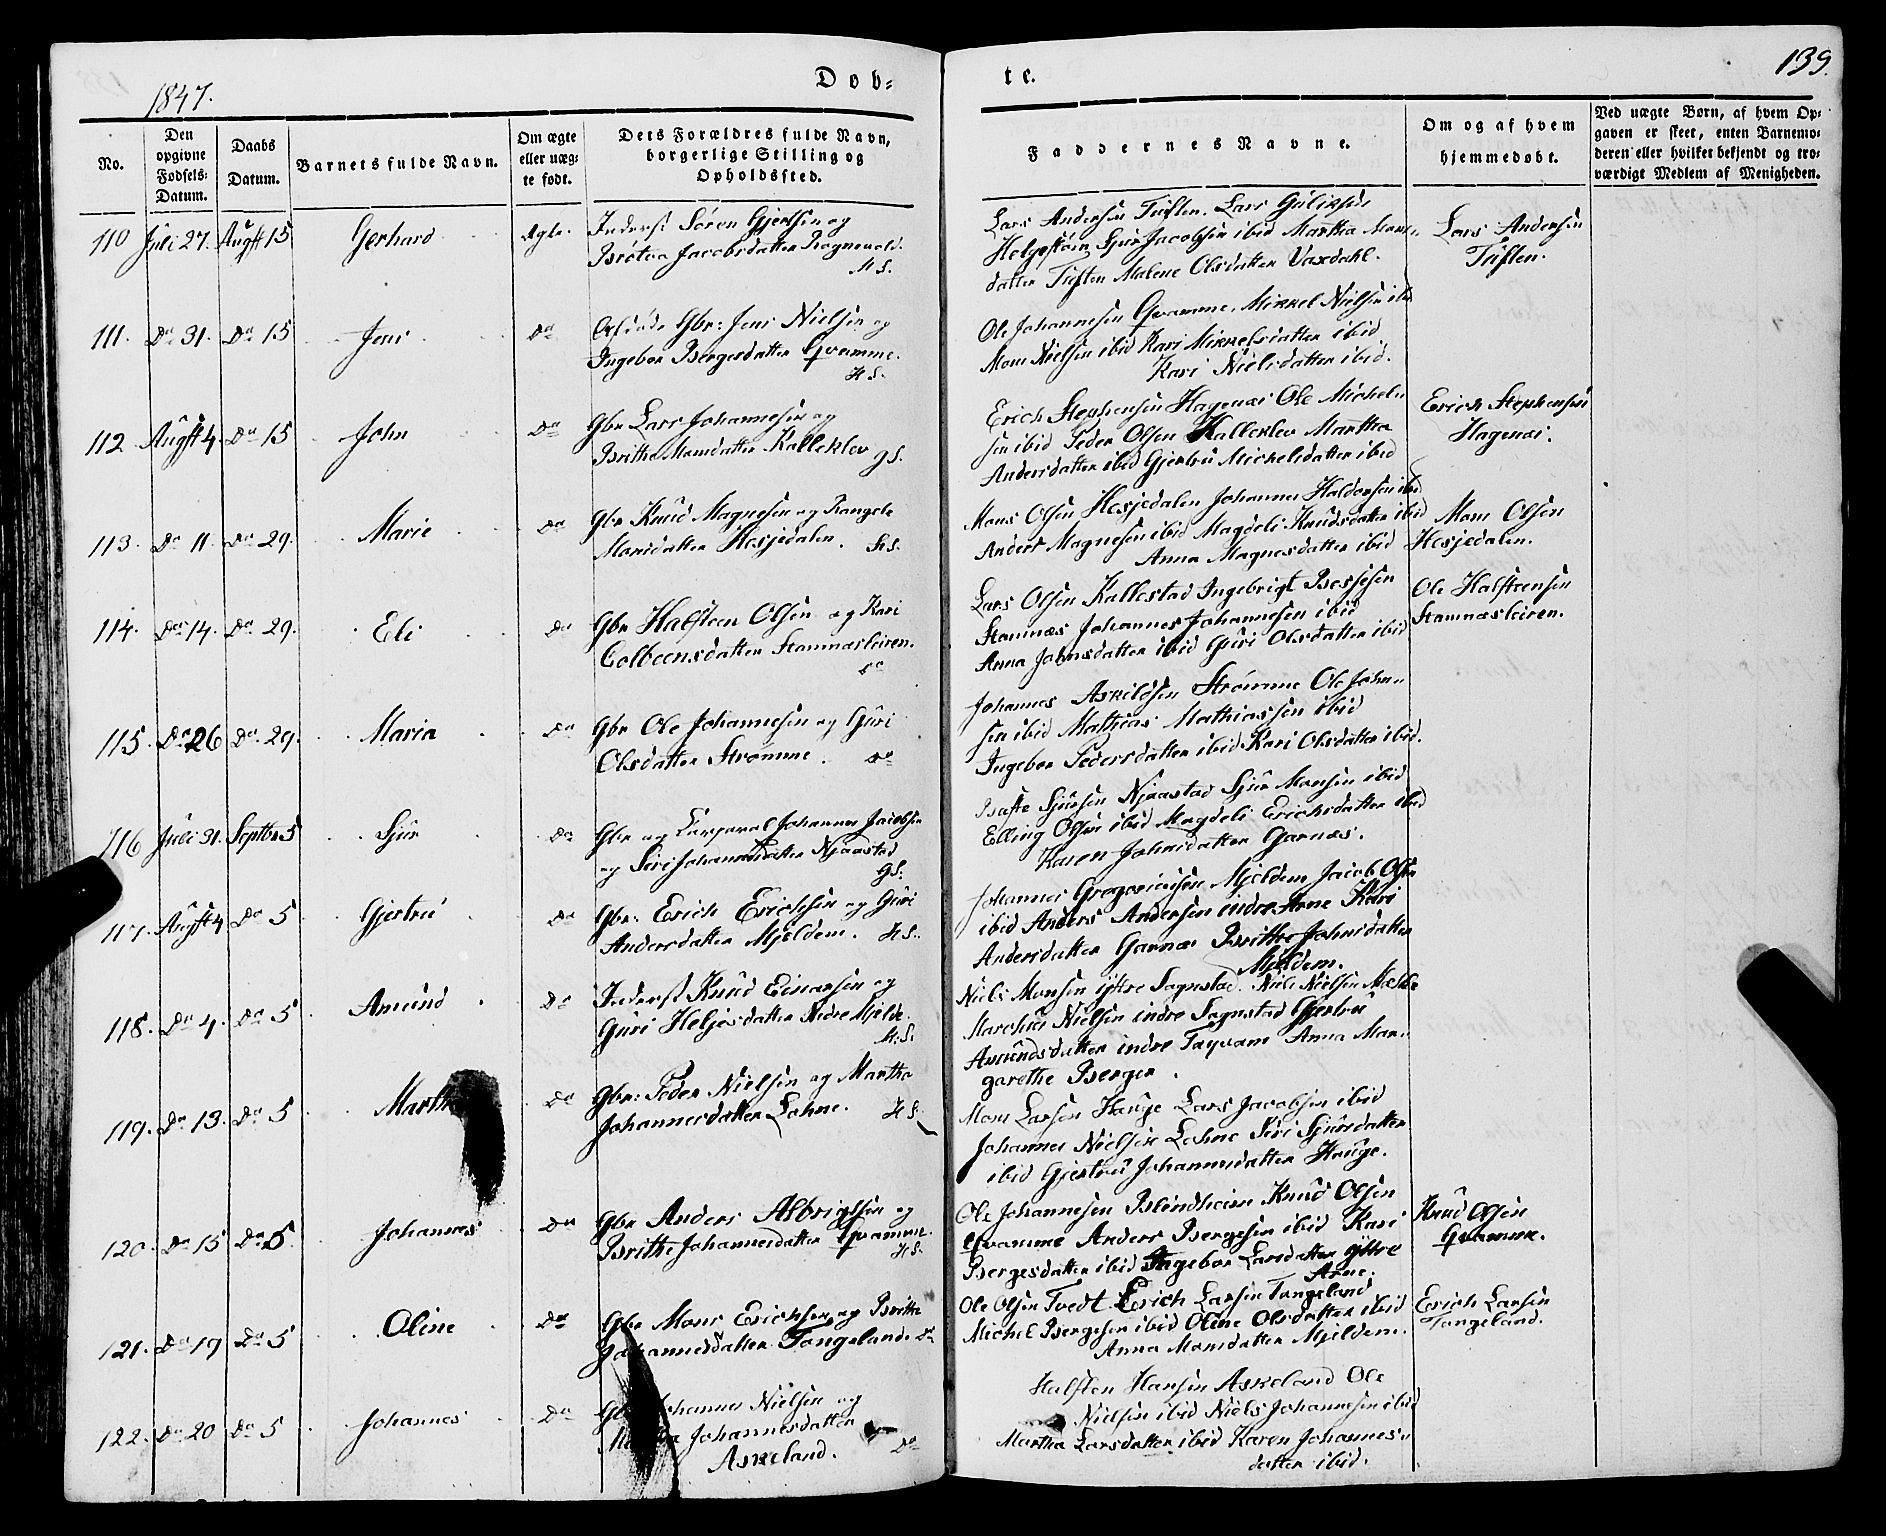 1847.
Døb-
te.
139.
No.
Den
opgivne
Fødsels-
Datum.
Daabs
Datum.
Barnets fulde Navn.
Om ægte
eller uæg-
te født.
Dets Forældres fulde Navn,
borgerlige Stilling og
Opholdssted.
Faddernes Navne.
Om og af hvem
hjemmedøbt.
Ved uægte Børn, af hvem Op-
gaven er skeet, enten Barnemo-
deren eller hvilket bekjendt og tro-
værdigt Medlem af Menigheden.
110 Juli 27. Augst 15 Gerhard Ægte. Inderst Søren Gjertsen og
Brøtva Jacobsdatter Rognevold.
H S.
Lars Andersen Tuften. Lars Guliksen
Helgestøin Sjur Jacobsen ibid Martha Mons-
datter Tuften Malene Olsdatter Vaxdahl.
Lars Andersen
Tuften.
111. Do 31. Do 15 Jens Do Gbr: Jens Nielsen og
Ingebor Bergesdatter Qvamme.
H S.
Ole Johannesen Qvamme, Mikkel Nielsen ibid
Mons Nielsen ibid Kari Mikkelsdatter ibid
Kari Nielsdatter ibid.
112 Augst 4. Do 15 John Do Gbr Lars Johannesen og
Brithe Monsdatter Kalleklev G S.
Erich Stephensen Hagenæs Ole Michel-
sen ibid Peder Olsen Kalleklev Martha
Andersdatter ibid Gjertru Mickelsdatter ibid
Erich Stephensen
Hagenæs.
113. Do 11. Do 29. Marie Do Gbr Knud Magnesen og Rangele
Monsdatter Hesjedalen. H S.
Mons Olsen Hesjedalen Johannes Haldorsen ibid
Anders Magnesen ibid Magdeli Knudsdatter ibid
Anna Magnesdatter ibid
Mons Olsen
Hesjedalen.
114. Do 14. Do 29. Eli Do Gbr Halsteen Olsen og Kari
Colbeensdatter Stamnæsleiren.
Do
Lars Olsen Kallestad Ingebrigt Børjesen
Stamnæs Johannes Johannesen ibid
Anna Johnsdatter ibid Guri Olsdatter ibid
Ole Halsteensen
Stamnæsleiren.
115. Do 26 Do 29. Maria Do Gbr Ole Johannesen og Guri
Olsdatter Strømme. Do
Johannes Askildsen Strømme Ole John-
sen ibid Mathias Mathiassen ibid
Ingebor Pedersdatter ibid Kari Olsdatter ibid.
116 Juli 31. Septbr 5 Sjur Do Gbr og Corporal Johannes Jacobsen
og Siri Johannesdatter Njaastad
G S:
Sjursen Njaastad Sjur Monsen ibid
Elling Olsen ibid Magdeli Erichsdatter ibid
Karen Johnsdatter Garnæs.
117. Augst 4 Do 5 Gjertru Do Gbr: Erich Erichsen og Guri
Andersdatter Mjeldem. H S.
Johannes Gregoriusen Mjeldem Jacob Olsen
ibid Anders Andersen indre Arne Kari
Andersdatter Garnæs Brithe Johnsdatter
Mjeldem.
118. Do 4. Do 5 Amund Do Inderst Knud Einarsen og
Guri Heljesdatter Nedre Mjelde.
H. S.
Niels Monsen ytre Sagnstad. Niels Nielsen
Marchus Nielsen indre Sagnstad Gjertru
Amundsdatter indre Anna Mar-
garethe Berger.
119. Do 13. Do 5 Martha Do Gbr: Peder Nielsen og Martha
Johannesdatter Lohne. H S.
Mons Larsen Hauge Lars Jacobsen ibid
Johannes Nielsen Lohne Siri Sjursdatter
ibid Gjertrud Johannesdatter Hauge.
120. Do 15 Do 5 Johannes Do Gbr Anders Albrigtsen og
Brithe Johannesdatter Qvamme.
H S.
Ole Johannesen Blindheim Knud Olsen
Qvamme Anders Bergesen ibid Kari
Bergesdatter ibid Ingebor Larsdatter ÿttre
Arne.
Knud Olsen
Qvamme.
121. Do 19 Do 5 Oline Do Gbr Mons Erichsen og Brithe
Johannesdatter Tangeland. Do
Ole Olsen Tvedt Erich Larsen Tangeland
Michel Bergesen ibid Oline Olsdatter ibid
Anna Monsdatter Mjeldem.
Erich Larsen
Tangeland.
122. Do 20 Do 5 Johannes Do Gbr Johannes Nielsen og
Martha Johannesdatter
Askeland. Do
Halsten Hansen Askeland Ole
Nielsen ibid Niels Johannesen ibid
Martha Larsdatter ibid Karen Johannes-
datter ibid.